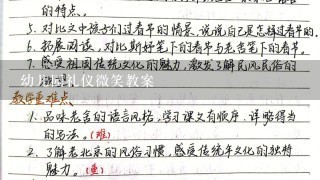 的特点。
5. 对比文中孩子们过春节的情景,说说自己是怎样过春节的。
6. 拓展阅读,对比斯好笔下的春节与老舍笔下的春节。
7. 感受祖国传统文化的魅力,激发了解民风民俗的
幼儿园礼仪微笑教案
教学重难点
1. 品味老舍的语言风格,学习课文有顺序、详略得当
的写法。(难)
2. 了解老北京的风俗习惯,感受传统年文化的独特
魅力。(重)